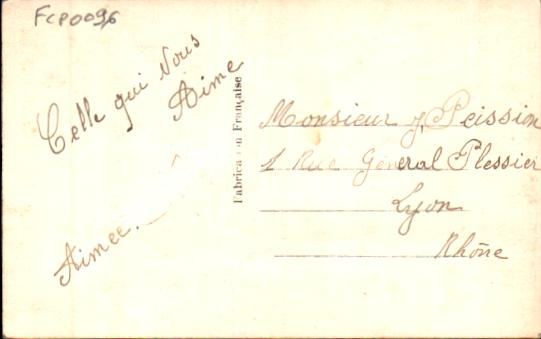 FCP0096
Celle qui Vous
Aime
Aimee.
Fabrication Française
Monsieur J. Peission
1 Rue Général Plessier
Lyon
Rhône